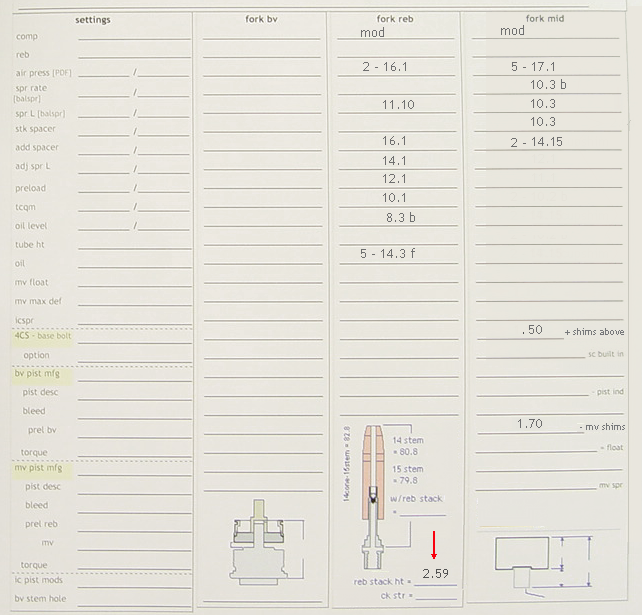 settings
fork bv
fork reb
fork mid
comp
mod
mod
reb
air press [PDF] /
2 - 16.1
5 - 17.1
spr rate [balspr]
10.3 b
spr L [balspr] /
11.10
10.3
stk spacer
10.3
add spacer /
16.1
2 - 14.15
adj spr L /
14.1
preload /
12.1
tcqm /
10.1
oil level /
8.3 b
tube ht
oil
5 - 14.3 f
mv float
mv max def
icspr
4CS - base bolt
.50 + shims above
option
sc built in
bv pist mfg
pist desc
- pist ind
bleed
prel bv
1.70 - mv shims
torque
= float
mv pist mfg
pist desc
mv spr
bleed
prel reb
mv
torque
ic pist mods
bv stem hole
14cone-16stem = 82.8
14 stem
= 80.8
15 stem
= 79.8
w/reb stack
=
reb stack ht = 2.59
ck str =